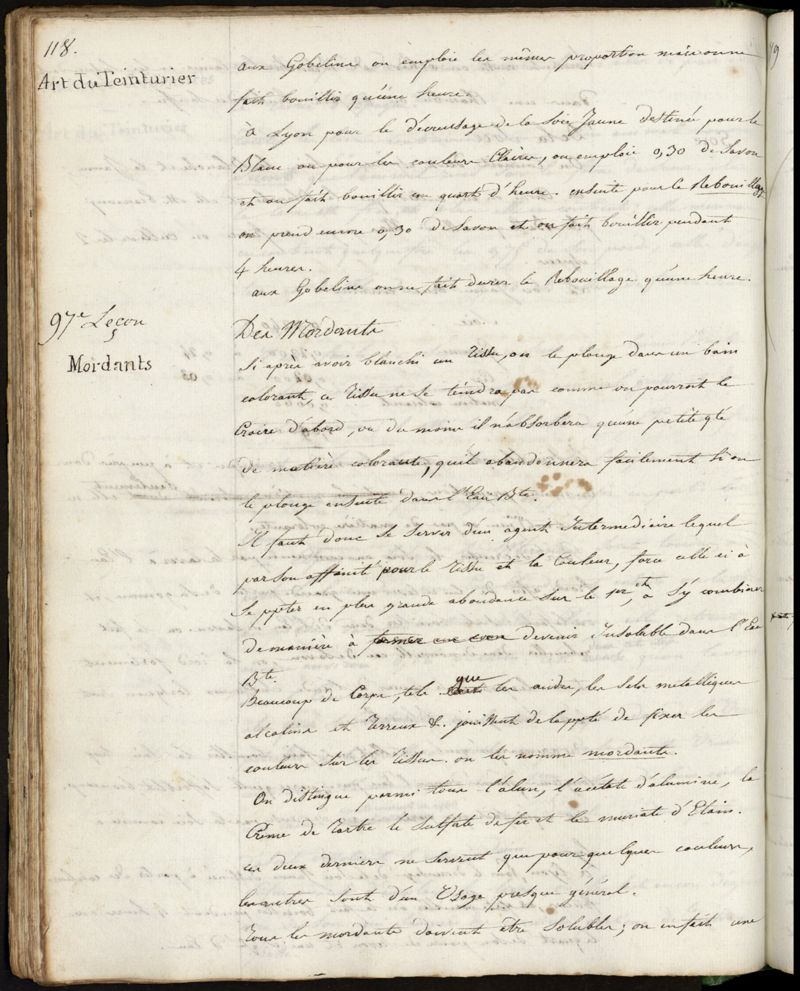 118.
Art du Teinturier
aux Gobelins on emploie les mêmes proportion mais on ne
fait bouillir qu'une heure.
à Lyon pour le décreusage de la Soie Jaune destinée pour le
Blanc ou pour les couleurs Claires, on emploie 0,30 de Savon
et on fait bouillir un quart d'heure. ensuite pour le Rebouillage
on prend encore 0,30 de Savon et on fait bouillir pendant
4 heures.
aux Gobelins on ne fait durer le Rebouillage qu'une heure.
97e Leçon
Mordants
Des Mordants
Si après avoir blanchi un tissu, on le plonge dans un bain
colorant, ce tissu ne se teindra pas comme on pourrait le
Croire d'abord, ou du moins il n'absorbera qu'une petite qté
de matière colorante, qu'il abandonnera facilement si on
le plonge ensuite dans l'Eau Bte.
Il faut donc se servir d'un agent Intermediaire lequel
par son affinité pour le tissu et la Couleur, force celle ci à
se pter en plus grande abondance sur le 1er, et à s'y combiner
de manière à devenir Insoluble dans l'Eau
Bte.
Beaucoup de Corps, tels que les acides, les sels metalliques
alcalins et terreux &. jouissent de la ppté de fixer les
couleurs sur les tissus. on les nomme mordants.
On distingue parmi tous l'alun, l'acétate d'alumine, la
Crême de Tartre le sulfate de fer et le muriate d'Etain.
ces deux derniers ne servent que pour quelques couleurs,
les autres sont d'un Usage presque général.
Tous les mordants doivent être solubles; on en fait une